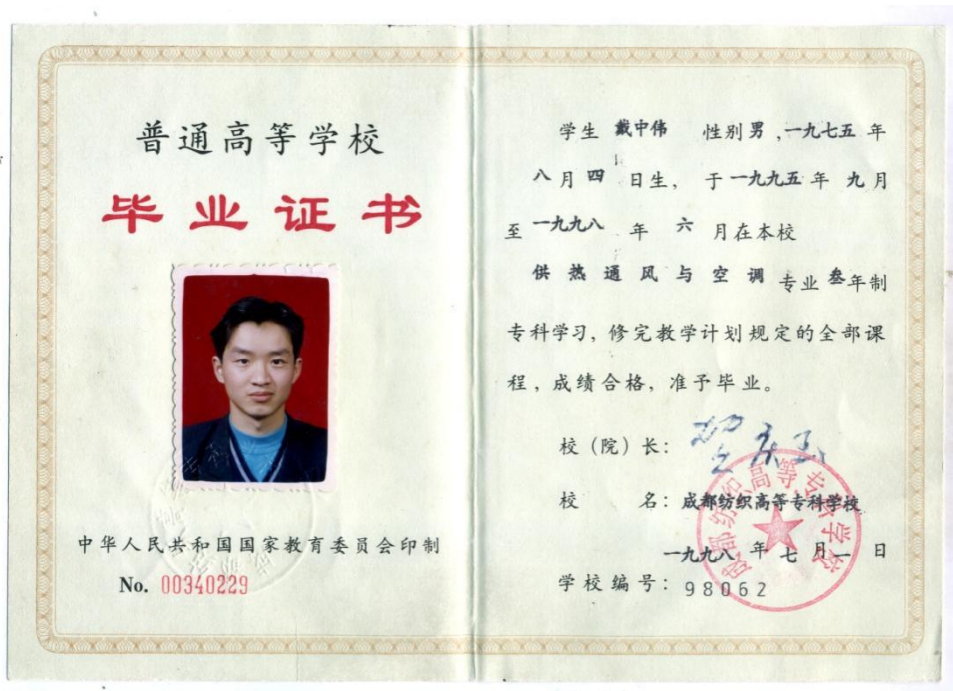 普通高等学校
毕业证书
中华人民共和国国家教育委员会印制
No. 00340229
学生 戴中伟 性别男,一九七五年
八月四日生, 于一九九五年九月
至一九九八年六月在本校
供热通风与空调专业叁年制
专科学习, 修完教学计划规定的全部课
程, 成绩合格, 准予毕业。
校(院)长:
校 名: 成都纺织高等专科学校
一九九八年七月一日
学校编号: 98062
成都纺织高等专科学校